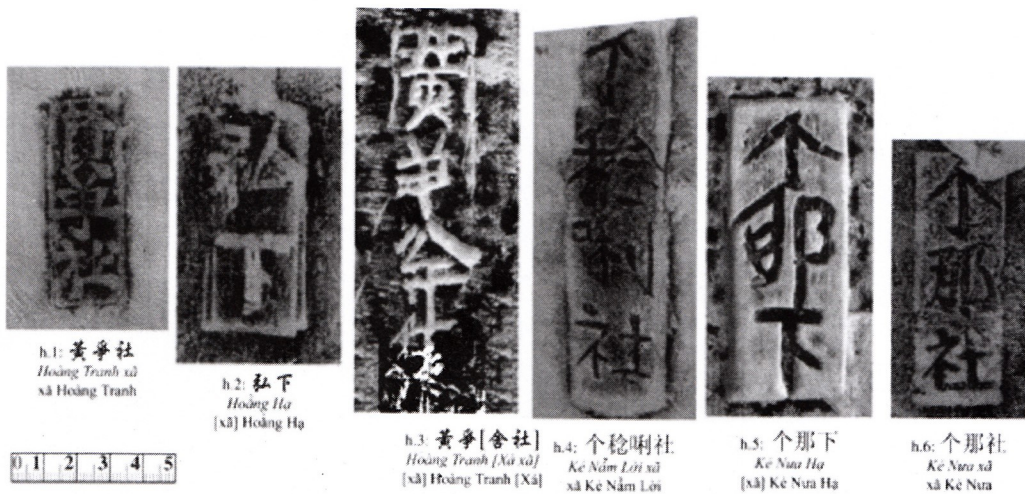 黃爭社
弘下
个稔唎社
个那下
个那社
h.1: 黃爭社
Hoàng Tranh xã
xã Hoàng Tranh
h.2: 弘下
Hoằng Hạ
[xã] Hoằng Hạ
h.3: 黃爭[舍社]
Hoàng Tranh [Xá xã]
[xã] Hoàng Tranh [Xá]
h.4: 个稔唎社
Kẻ Nẫm Lời xã
xã Kẻ Nẫm Lời
h.5: 个那下
Kẻ Nưa Hạ
[xã] Kẻ Nưa Hạ
h.6: 个那社
Kẻ Nưa xã
xã Kẻ Nưa
0 1 2 3 4 5